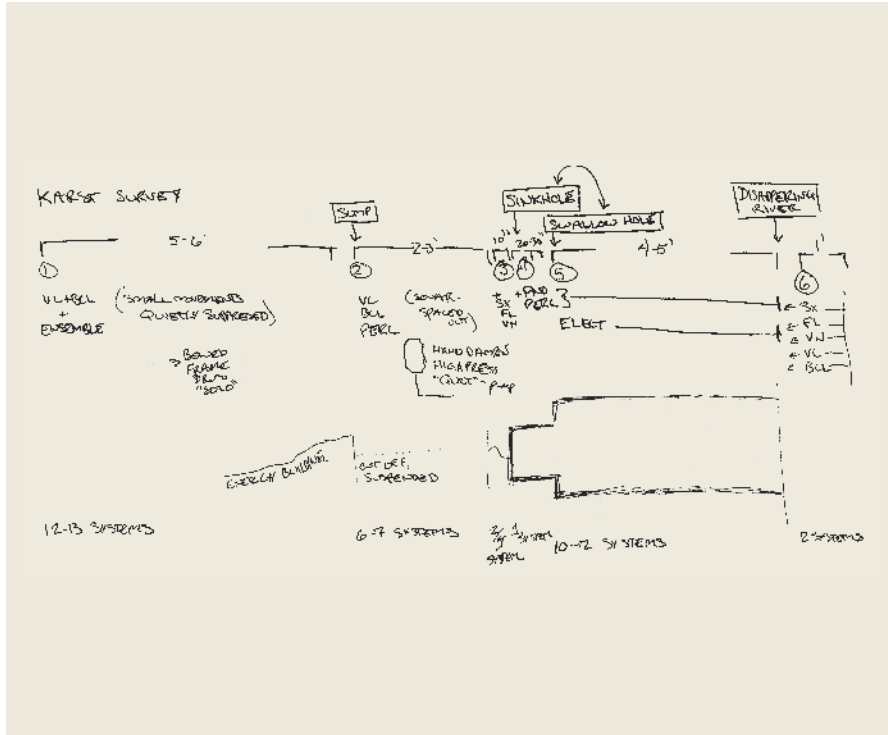 KARST SURVEY
SUMP
SINKHOLE
SWALLOW HOLE
DISAPPERING
RIVER
5-6'
2-3'
10"
20-30"
4-5'
1'
1
2
3
4
5
6
VC+BCL
+
ENSEMBLE
(SMALL MOVEMENTS
QUIETLY SUPPRESSED)
BOWED
FRAME
DRUM
"SOLO"
VC
BCL
PERC
SPACED
HAND DAMPEN
HIGH PRESS
"QUIET"
SX
FL
VN
+ PNO
PERC
ELECT
SX
FL
VN
VC
BCL
ENERGY BUILDING
CUT OFF,
SUSPENDED
12-13 SYSTEMS
6-7 SYSTEMS
SYSTEM
1 SYSTEM
10-12 SYSTEMS
2 SYSTEMS